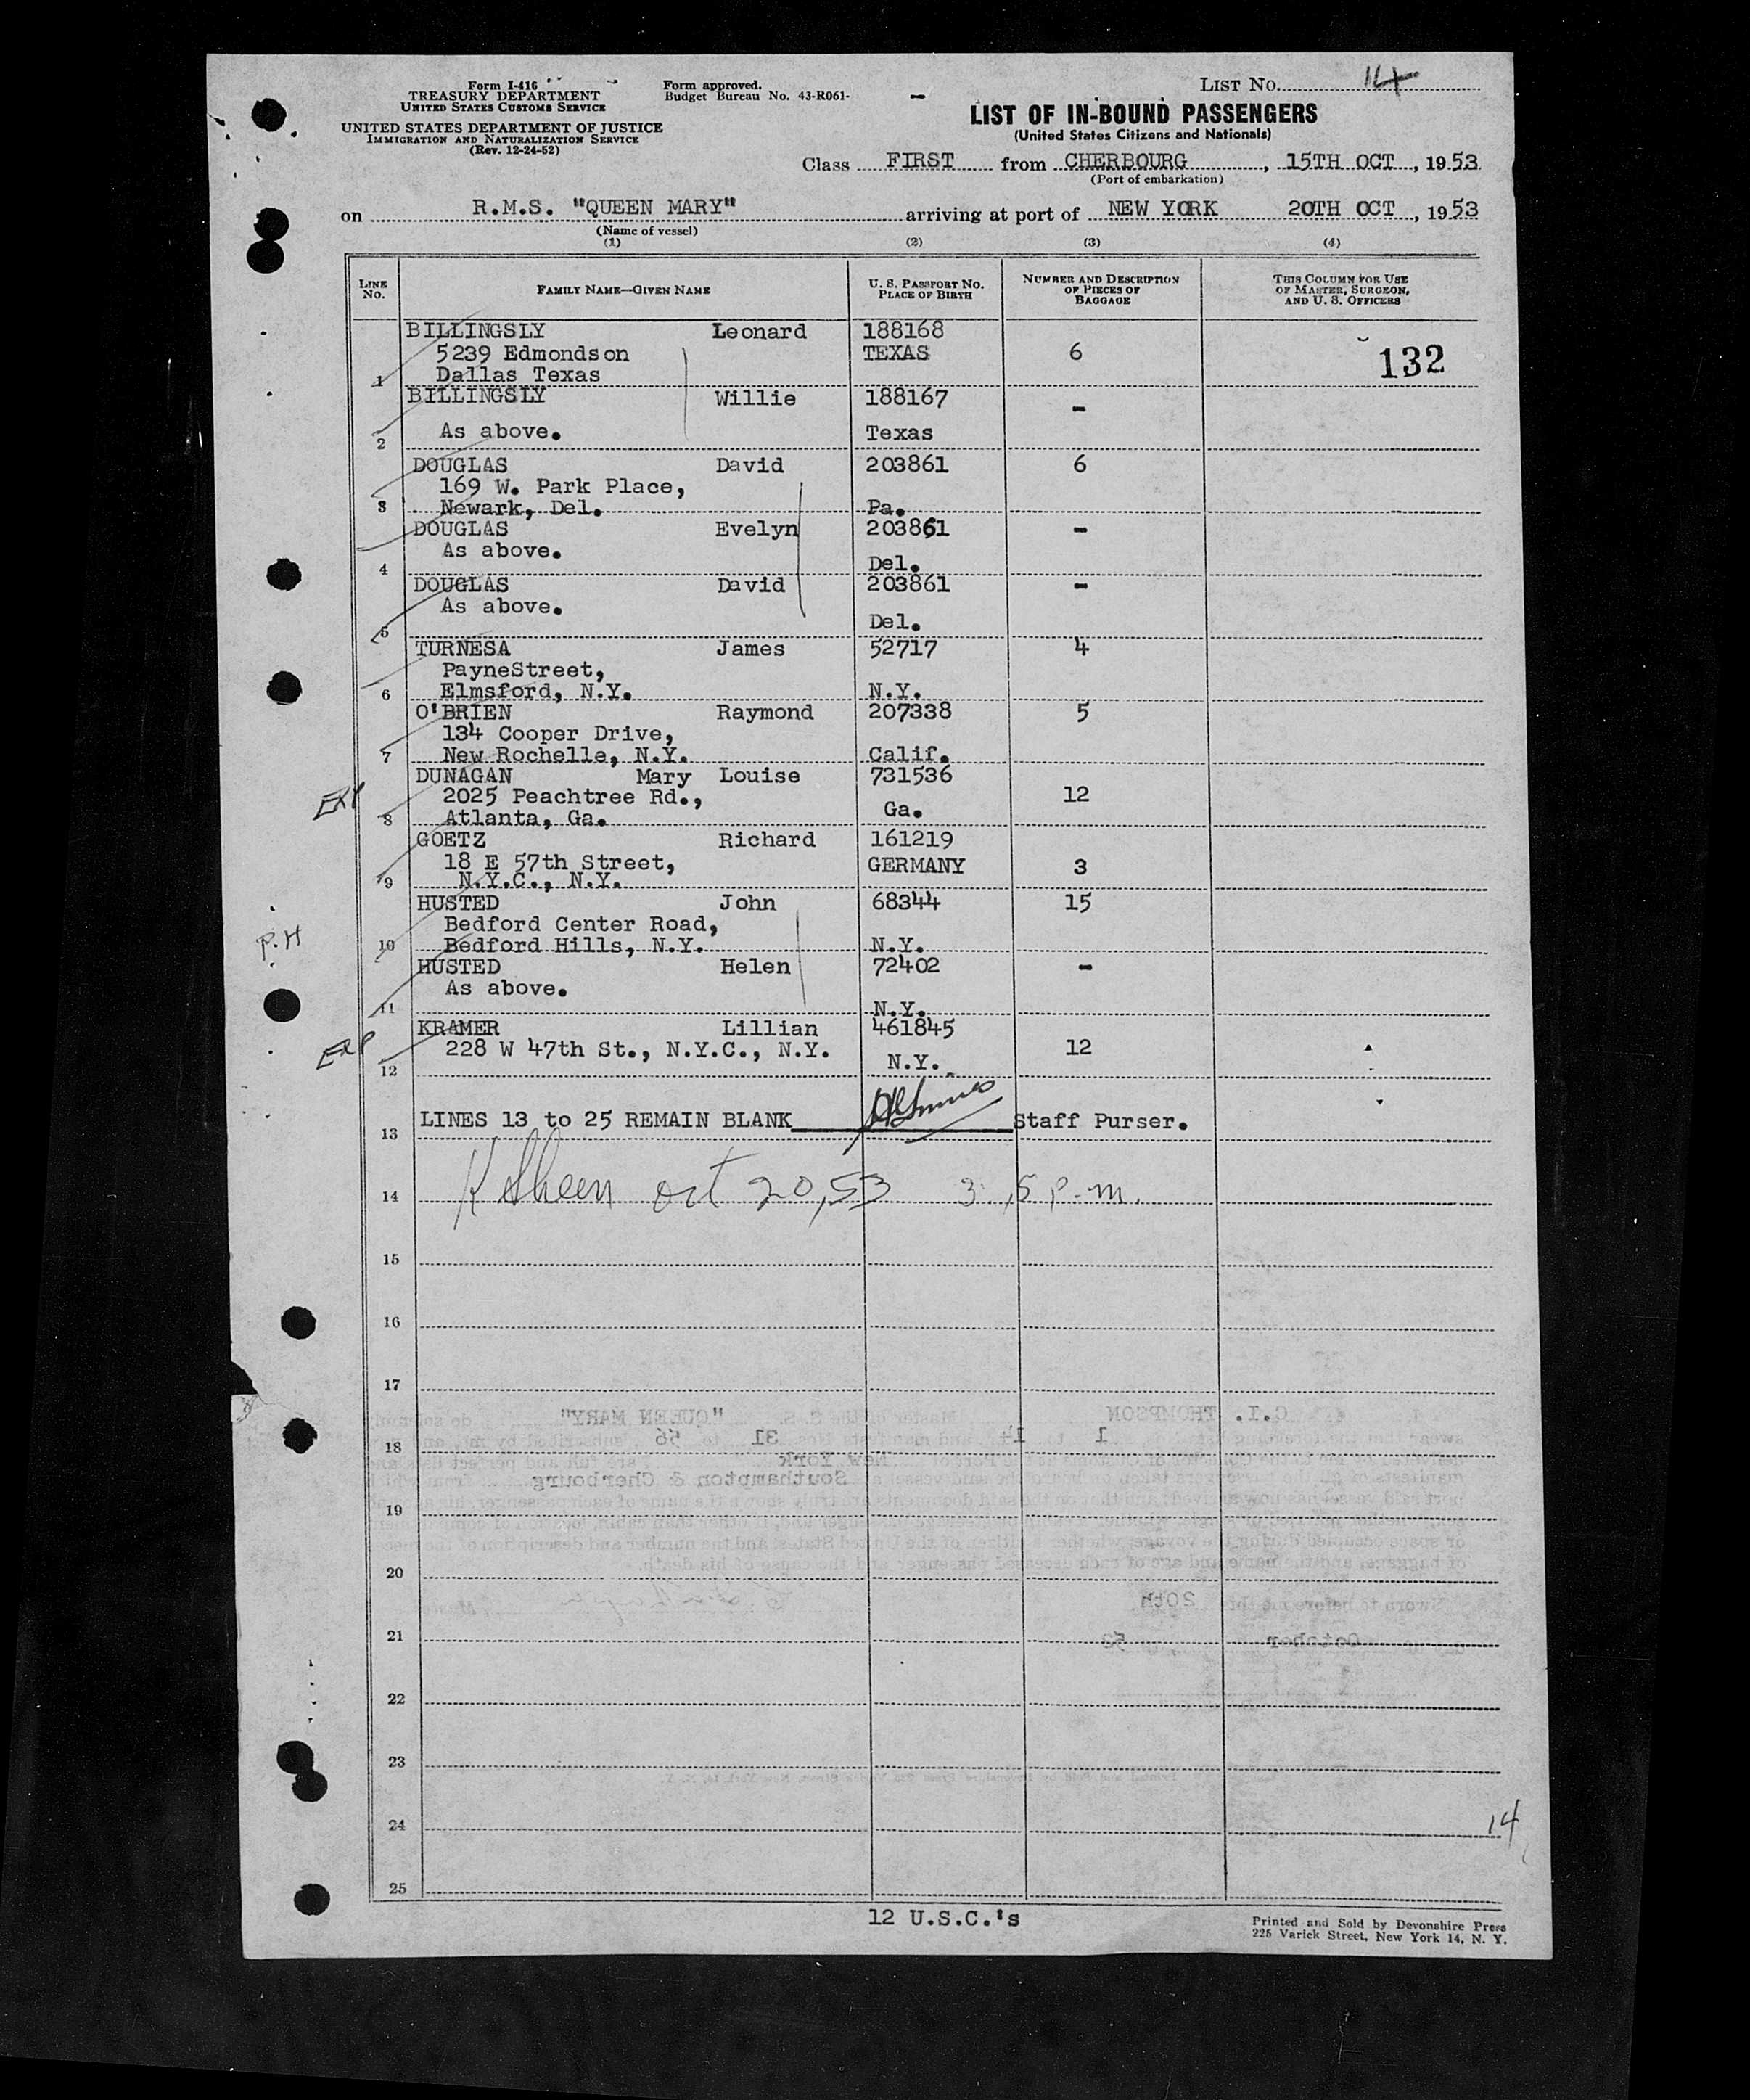 Form I-416
TREASURY DEPARTMENT
UNITED STATES CUSTOMS SERVICE
UNITED STATES DEPARTMENT OF JUSTICE
IMMIGRATION AND NATURALIZATION SERVICE
(Rev. 12-24-52)
Form approved.
Budget Bureau No. 43-R061-
LIST No. 14
LIST OF IN-BOUND PASSENGERS
(United States Citizens and Nationals)
Class FIRST from CHERBOURG, 15TH OCT, 1953
(Port of embarkation)
on R.M.S. "QUEEN MARY" arriving at port of NEW YORK 20TH OCT, 1953
(Name of vessel)
(1) (2) (3) (4)
LINE No. FAMILY NAME—GIVEN NAME U. S. PASSPORT NO. PLACE OF BIRTH NUMBER AND DESCRIPTION OF PIECES OF BAGGAGE THIS COLUMN FOR USE OF MASTER, SURGEON, AND U. S. OFFICERS
BILLINGSLY Leonard 188168
5239 Edmondson TEXAS 6 132
1 Dallas Texas
BILLINGSLY Willie 188167 -
2 As above. Texas
DOUGLAS David 203861 6
169 W. Park Place,
3 Newark, Del. Pa.
DOUGLAS Evelyn 203861 -
As above.
4 Del.
DOUGLAS David 203861 -
As above.
5 Del.
TURNESA James 52717 4
PayneStreet,
6 Elmsford, N.Y. N.Y.
O'BRIEN Raymond 207338 5
134 Cooper Drive,
7 New Rochelle, N.Y. Calif.
DUNAGAN Mary Louise 731536
2025 Peachtree Rd., 12
8 Atlanta, Ga. Ga.
GOETZ Richard 161219
18 E 57th Street, GERMANY 3
9 N.Y.C., N.Y.
HUSTED John 68344 15
Bedford Center Road,
P.H
10 Bedford Hills, N.Y. N.Y.
HUSTED Helen 72402 -
As above.
11 N.Y.
KRAMER Lillian 461845
228 W 47th St., N.Y.C., N.Y. 12
12 N.Y.
LINES 13 to 25 REMAIN BLANK Staff Purser.
13
oct 20,53 p.m.
14
15
16
17
"QUEEN MARY" C.I. THOMPSON
18 56 31 14 1
New York
Southampton & Cherbourg
19
20
20th
21 53 October
22
23
24 14
25
12 U.S.C.'s
Printed and Sold by Devonshire Press
226 Varick Street, New York 14, N. Y.